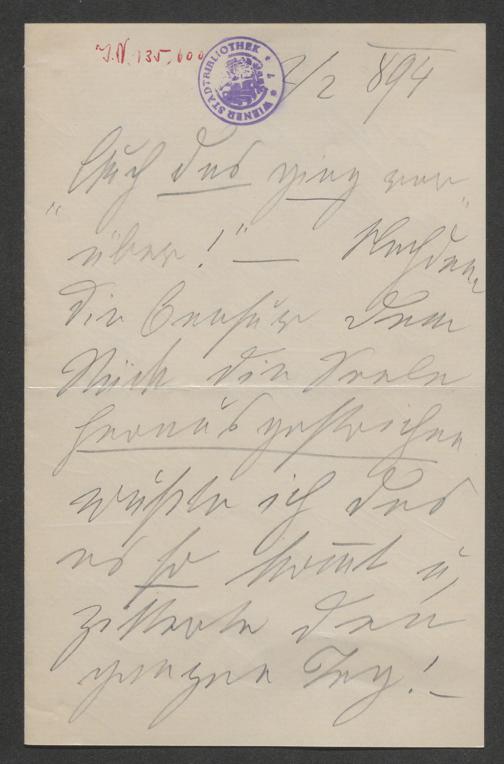 J.N. 135,600
WIENER STADTBIBLIOTHEK
2/2 894
„Auch das ging vor-
über!" — Nachdem
die Censur dem
Stück die Seele
herausgestrichen
wußte ich das
es so kommt u,
zitterte den
ganzen Tag! —